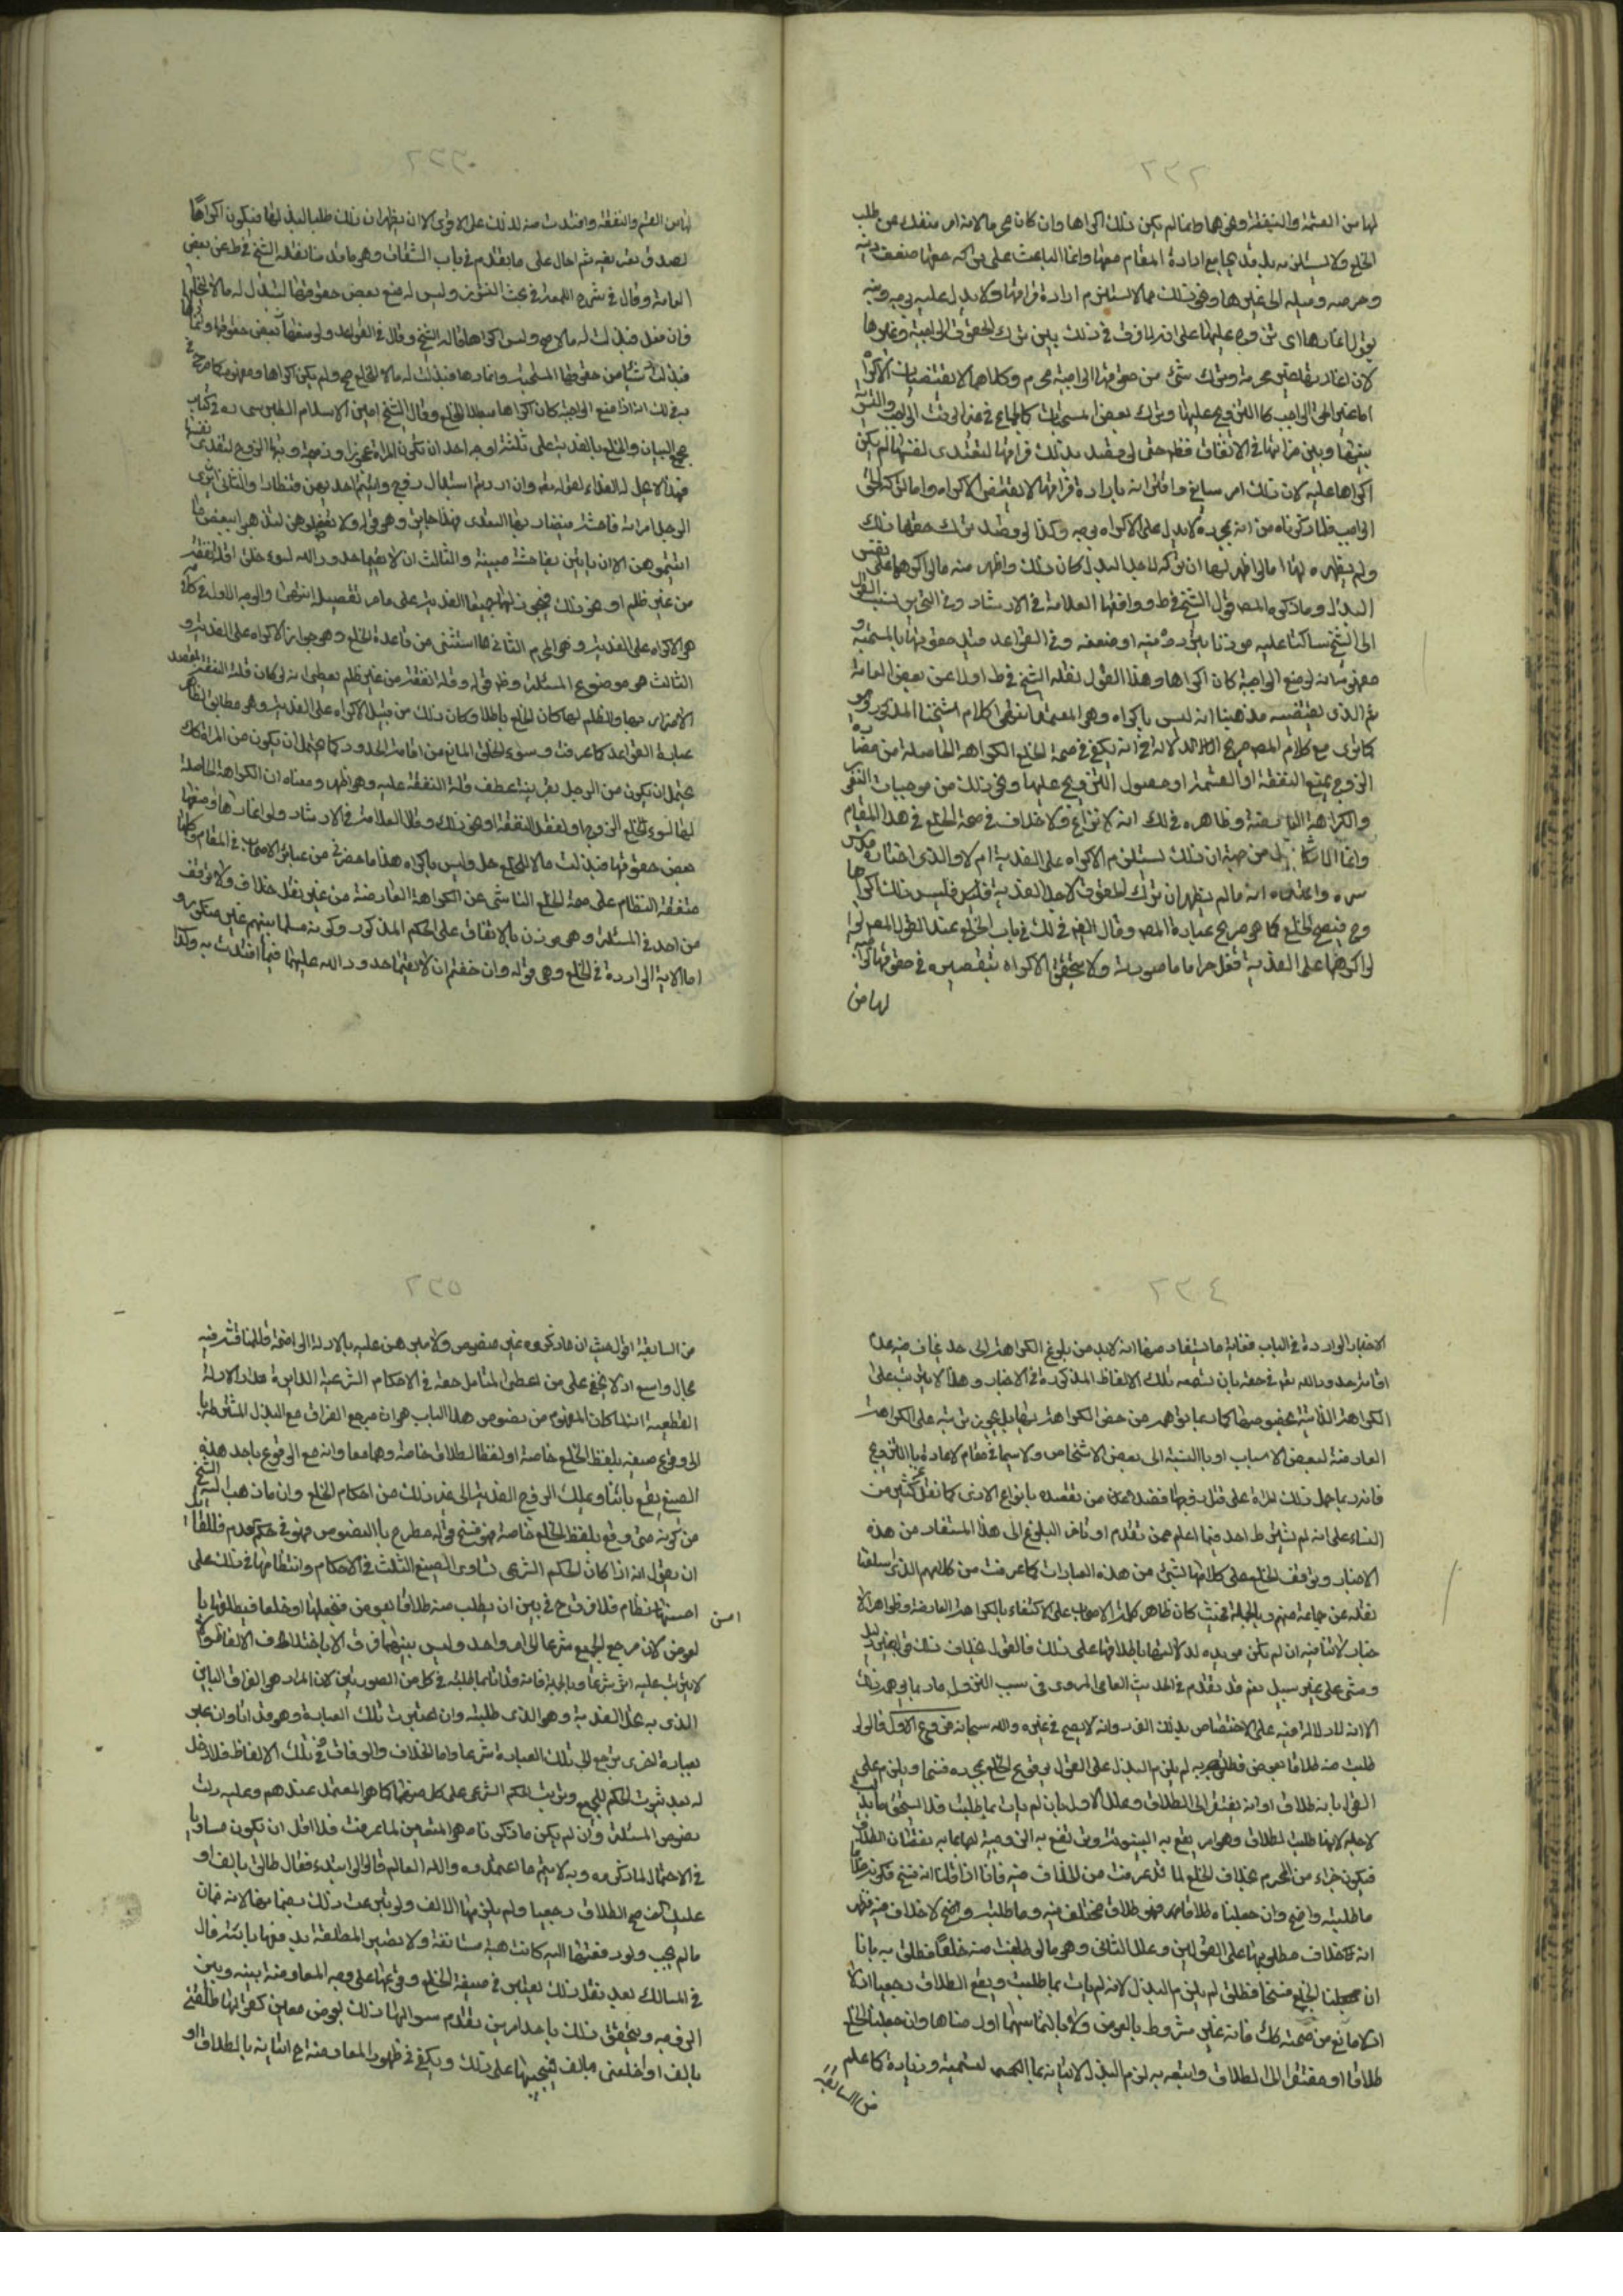 ٢٣٢
لها من القسمة والنفقة ونحوهما وانما لم يكن ذلك اكراها وان كان محرما لانه امر منفك عن طلب
الخلع ولا يستلزمه بل قد يجامع ارادة المقام معها وانما الباعث على تركه حقها ضعف دينه
وحرصه وميله الى غيرها ونحو ذلك مما لا يستلزم ارادة فراقها ولا يدل عليه بوجه ومنه
يجوز اغارها اي تزوجه عليها على انه لا فرق في ذلك بين ترك الحقوق الواجبة وغيرها
لان اغارتها بغير محرمة وترك شيء من حقوقها الواجبة محرم وكلاهما لا يقتضيان الاكراه
اما غير الحق الواجب كالتزويج عليها وترك بعض المستحبات كالجماع في غير الوقت الواجب والتسوية
بينها وبين ضراتها في الانفاق فظ حتى لو قصد بذلك فراقها لتفتدي نفسها لم يكن
اكراها عليه لان ذلك امر سايغ واقترانه بارادة فراقها لا يقتضي الاكراه واما ترك الحق
الواجب فلما ذكرناه من انه بمجرده لا يدل على الاكراه بوجه وكذا لو قصد بترك حقها ذلك
ولم يظهره لها اما لو اظهر لها ان تركه لاجل البذل كان ذلك واظهر منه ما لو اكرهها على نفس
البذل وما ذكره المص قول الشيخ في ط ووافقها العلامة في الارشاد وفي التحرير نسب القول
الى الشيخ ساكتا عليه موذنا بتردده فيه او ضعفه وفي القواعد قيد حقوقها بالمستحبة و
مفهومه انه لو منع الواجبة كان اكراها وهذا القول نقله الشيخ في ط اولا عن بعض العامة
ثم الذي يقتضيه مذهبنا انه ليس باكراه وهو المعتمد انتهى كلام شيخنا المذكور وهو
كما ترى مع كلام المص صريح الدلالة في انه يكفي في صحة الخلع الكراهة الحاصلة من مضارة
الزوج بمنع النفقة او القسمة او حصول التزويج عليها ونحو ذلك من موجبات التنفر
والكراهة الناشئة وظاهره في لك انه لا نزاع ولا خلاف في صحة الخلع في هذا المقام
وانما الاشكال من جهة ان ذلك يستلزم الاكراه على الفدية ام لا والذي اختاره قدس
سره واعتمده انه ما لم يظهر ان ترك الحقوق لاجل الفدية فليس ذلك اكراها
وح فيصح الخلع كما هو صريح عبارة المص وقال ايضا في لك في باب الخلع عند القول المص لو
لو اكرهها على الفدية فعل حراما ما صورته ولا يتحقق الاكراه بتقصيره في حقوقها الواجبة
لها من
لها من القسم والنفقة وافتدت منه لذلك على الاقوى الا ان يظهر ان ذلك طلبا لبذلها فيكون اكراها
لصدق تعريفه ثم احال على ما تقدم في باب الشقاق وهو ما قدمنا نقله الشيخ في ط عن بعض
العامة وقال في شرح اللمعة في بحث النشوز وليس له منع بعض حقوقها لتبذل له مالا ليخلعها
فان فعل فبذلت له مالا صح وليس اكراها قاله الشيخ وقال في القواعد ولو منعها بعض حقوقها او اغارها
فبذلت شيئا من حقوقها المستحبة واغارها فبذلت له مالا للخلع صح ولم يكن اكراها ومفهومه كما صرح في
به في لك انه اذا منع الواجبة كان اكراها مبطلا للخلع وقال الشيخ امين الاسلام الطبرسي ره في كتاب
مجمع البيان والخلع بالفدية على ثلثة اوجه احدها ان تكون المراة عجوزا او ذميمة وبها الزوج لتفتدي نفسها
فهذا لا يحل له الفداء لقوله تعه وان اردتم استبدال زوج واتيتم احديهن قنطارا والثاني ان يرى
الرجل امراته فاحشة فيضار بها لتفتدي فهذا جايز وهو قوله ولا تعضلوهن لتذهبوا ببعض ما
اتيتموهن الا ان ياتين بفاحشة مبينة والثالث ان لا يقيما حدود الله لسوء خلق او قلة نفقة
من غير ظلم او نحو ذلك فيجوز لهما جميعا الفدية على ما مر تفصيله انتهى والوجه الاول في كلامه
هو الاكراه على الفدية وهو المحرم الثاني مما استثنى من قاعدة الخلع وهو جواز الاكراه على الفدية و
الثالث هو موضوع المسئلة وظ قوله وقلة نفقة من غير ظلم يعطي انه لو كان قلة النفقة لقصد
الاضرار بها والظلم لها كان الخلع باطلا وكان ذلك من قبيل الاكراه على الفدية وهو مطابق لظاهر
عبارة القواعد كما عرفت وسوء الخلق المانع من اقامة الحدود كما يحتمل ان يكون من المراة كك
يحتمل ان يكون من الرجل بقرينة عطف قلة النفقة عليه وهو اظهر ومعناه ان الكراهة الحاصلة
لها لسوء الخلع الزوج او لفقد النفقة او نحو ذلك وقال العلامة في الارشاد ولو اغارها او منعها
بعض حقوقها فبذلت مالا للخلع حل وليس باكراه هذا ما حضرني من عبائر الاصحاب في المقام وكلها
متفقة النظام على صحة الخلع الناشي عن الكراهة العارضة من غير نقل خلاف ولا توقف
من احد في المسئلة وهو موذن بالاتفاق على الحكم المذكور وكونه مسلما بينهم غير منكور و
اما الاية الواردة في الخلع وهو قوله وان خفتم ان لا يقيما حدود الله عليهما فيما افتدت به وكذا
٢٣٤
الاخبار الواردة في الباب فغاية ما يستفاد منها انه لا بد من بلوغ الكراهة الى حد يخاف منه عدم
اقامة حدود الله تعه في حقه بان تسمعه تلك الالفاظ المذكورة في الاخبار وهذا لا يترتب على
الكراهة الذاتية بخصوصها كما ربما يتوهم من حض الكراهة بها بل يجوز ترتبه على الكراهة
العارضة لبعض الاسباب او بالنسبة الى بعض الاشخاص ولا سيما في مقام الاغارة بالتزويج
فانه ربما حمل ذلك المراة على قتل زوجها فضلا عن من تقصده بانواع الاذى كما نقل كثير من
النساء على انه لم يشترط احد فيما اعلم ممن تقدم او تاخر البلوغ الى هذا المستفاد من هذه
الاخبار وتوقف الخلع على كلامها لشيء من هذه العبارات كما عرفت من كلامهم الذي سلفنا
نقله عن جماعة منهم وبالجملة فحيث كان ظاهر كلام الاصحاب على الاكتفاء بالكراهة العارضة وظواهر الا
خبار لا تنافيه ان لم تكن مويده لدلالتها باطلاقها على ذلك فالقول بخلاف ذلك قول بغير دليل
ومشى على غير سبيل نعم قد تقدم في الحديث العامي المروي في سبب النزول ما ربما يوهم ذلك
الا انه لا دلالة فيه على الاختصاص بذلك الفرد وانه لا يصح في غيره والله سبحانه فروع الاول قالوا لو
طلبت منه طلاقا بعوض فخلعها به لم يلزم البذل على القول بوقوع الخلع بمجرده فسخا ويلزم على
القول بانه طلاق او انه يفتقر الى الطلاق وعلل الاول بانه لم يات بما طلبت فلا يستحق ما بذلت
لاجله لانها طلبت الطلاق وهو امر يقع به البينونة وترتفع به الزوجية
فيكون جزاء من المحرم بخلاف الخلع لما قد عرفت من الخلاف فيه فانا اذا قلنا انه فسخ
ما طلبته واضح وان جعلناه طلاقا فهو طلاق مختلف فيه وما طلبته واضح لا خلاف فيه فظهر
انه خلاف مطلوبها على القولين وعلل الثاني وهو ما لو طلبت منه خلعا فطلق به بانا
ان جعلنا الخلع فسخا فطلق لم يلزم البذل لانه لم يات بما طلبت ويقع الطلاق رجعيا اذ لا
اذ لا مانع من صحته كك فانه غير مشروط بالعوض ولا بالتماسهما او رضاها وان جعلنا الخلع
طلاقا او مفتقرا الى الطلاق واتبعه به لزم البذل لاتيانه بما التمسه وزيادة كما علم
من السابقة
٢٣٥
من السابقة اقول حيث ان ما ذكروه غير منصوص ولا مبرهن عليه بالادلة الواضحة فللمناقشة فيه
مجال واسع اذ لا يخفى على من اعطى التامل حقه في الاحكام الشرعية الدايرة مدار الادلة
القطعية انه لما كان المفهوم من نصوص هذا الباب هو ان مرجع الفراق مع البذل المشترط
الى وقوع صيغة بلفظ الخلع خاصة او لفظ الطلاق خاصة وهما معا وانه مع الوقوع باحد هذه
الصيغ يقع بائنا ويملك الزوج الفدية الى غير ذلك من احكام الخلع وان ما ذهب اليه الشيخ
من كونه متى وقع بلفظ الخلع خاصة فهو فسخ قوله مطرح بالنصوص فهو في حكم العدم فللقائل
ان يقول انه اذا كان الحكم الشرعي تساوي الصيغ الثلث في الاحكام وانتظامها في ذلك على
احسن نظام فلا فرق ح في بين ان يطلب منه طلاقا بعوض فيخلعها او خلعا فيطلقها با
لعوض لان مرجع الجميع شرعا الى امر واحد وليس بينهما فرق الا باختلاف الالفاظ وذا
لا يترتب عليه اثر شرعا وبالجملة فانه قد اتى بما طلبته في كل من الصورتين لان المراد هو الفراق البائن
الذي به يملك الفدية وهو الذي طلبته وان اختيرت تلك العبارة وهو قد اتى وان عبر
بعبارة اخرى ترجع الى تلك العبارة شرعا واما الخلاف والوفاق في تلك الالفاظ فلا دخل
له بعد ثبوت الحكم للجميع وترتب الحكم الشرعي على كل منهما كما هو المعتمد عندهم وعليه دلت
نصوص المسئلة وان لم يكن ما ذكرناه هو المتعين لما عرفت فلا اقل ان يكون مساويا
في الاحتمال لما ذكروه وبه لا يتم ما اعتمدوه والله العالم قالوا لو ابتدء فقال طالق بالف او
عليك الف صح الطلاق رجعيا ولم يلزمها الالف ولو تبرعت بذلك بضمانها لانه ضمان
ما لم يجب ولو دفعتها اليه كانت هبة مستانفة ولا تصير المطلقة بدفعها باينة قال
في المسالك بعد نقل ذلك يعتبر في صيغة الخلع وقوعها على وجه المعاوضة بينه وبين
الزوجة ويتحقق ذلك باحد امرين تقدم سوالها ذلك بعوض معين كقولها طلقني
بالف او اخلعني بالف فيجيبها على ذلك ويكفي في ظهور المعاوضة ح اتيانه بالطلاق او